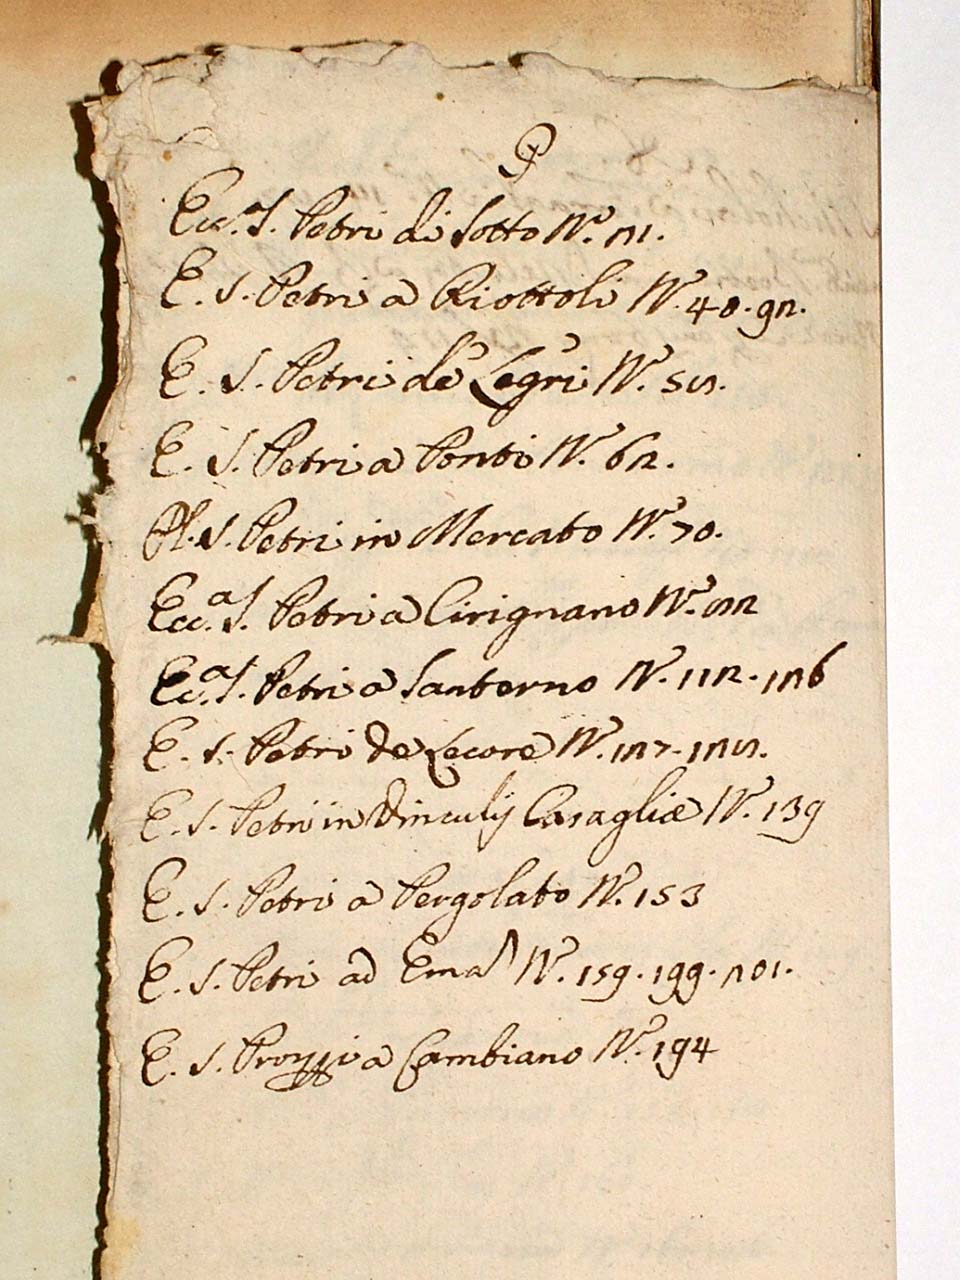 P
Ecc.ª S. Petri di Sotto N.º 21.
E. S. Petri a Riottoli N.º 40. 92.
E. S. Petri de Legri N.º 58.
E. S. Petri a Ponti N.º 62.
Pl. S. Petri in Mercato N.º 70.
Ecc.ª S. Petri a Cirignano N.º 82
Ecc.ª S. Petri a Santerno N.º 112. 126
E. S. Petri de Lecore N.º 127. 128.
E. S. Petri in Vinculij Casagliæ N.º 139
E. S. Petri a Pergolato N.º 153
E. S. Petri ad Ema N.º 159. 199. 201.
E. S. a Cambiano N.º 194